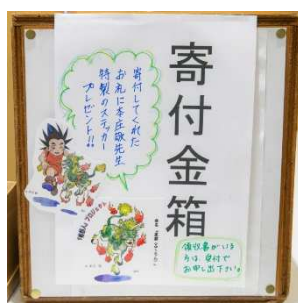 寄付金箱
寄付してくれた
お礼に本庄敬先生
特製のステッカー
プレゼント!!
領収書がいる
方は、受付で
お申し出下さい。